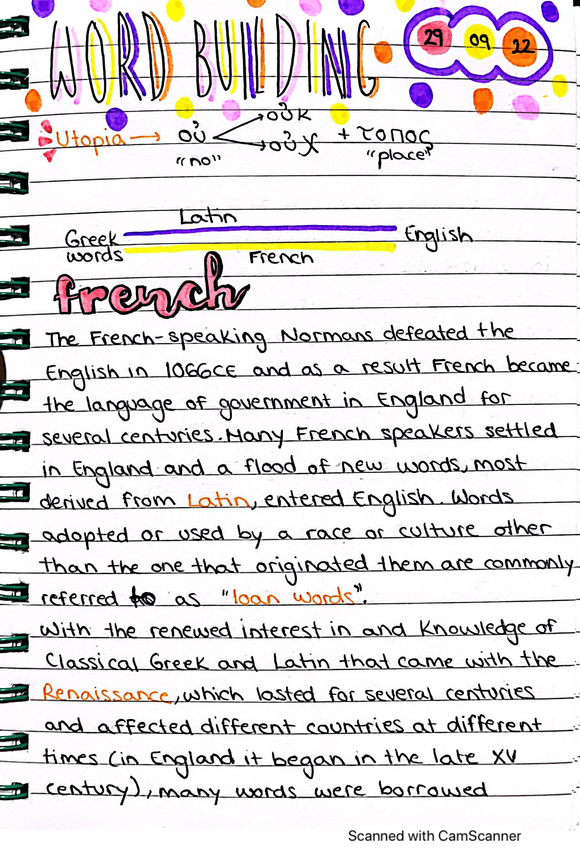 WORD BUILDING
29 09 22
Utopia → οὐ → οὐκ
→ οὐχ + τοπος
"no" "place"
Latin
Greek words English
French
french
The French-speaking Normans defeated the
English in 1066CE and as a result French became
the language of government in England for
several centuries. Many French speakers settled
in England and a flood of new words, most
derived from Latin, entered English. Words
adopted or used by a race or culture other
than the one that originated them are commonly
referred to as "loan words".
With the renewed interest in and knowledge of
Classical Greek and Latin that came with the
Renaissance, which lasted for several centuries
and affected different countries at different
times (in England it began in the late XV
century), many words were borrowed
Scanned with CamScanner